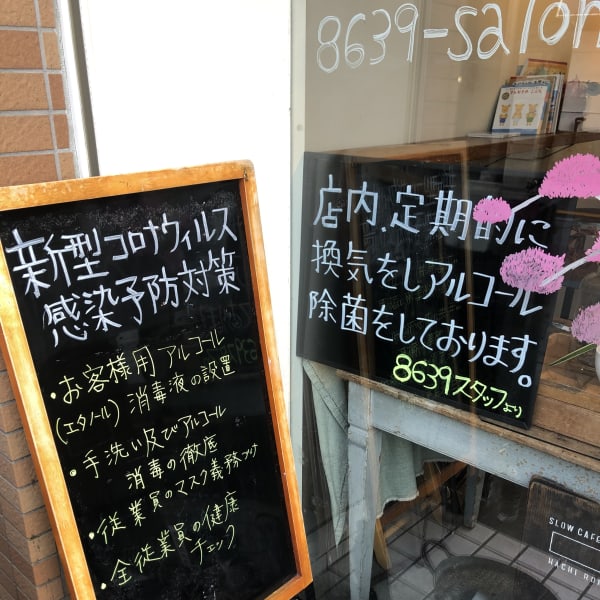 8639-salon
新型コロナウィルス
感染予防対策
・お客様用アルコール
(エタノール)消毒液の設置
・手洗い及びアルコール
消毒の徹底
・従業員のマスク義務づけ
・全従業員の健康
チェック
店内、定期的に
換気をしアルコール
除菌をしております。
8639スタッフより
SLOW CAFE
HACHI